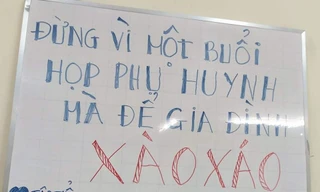 ĐỪNG VÌ MỘT BUỔI
HỌP PHỤ HUYNH
MÀ ĐỂ GIA ĐÌNH
XÀO XÁO